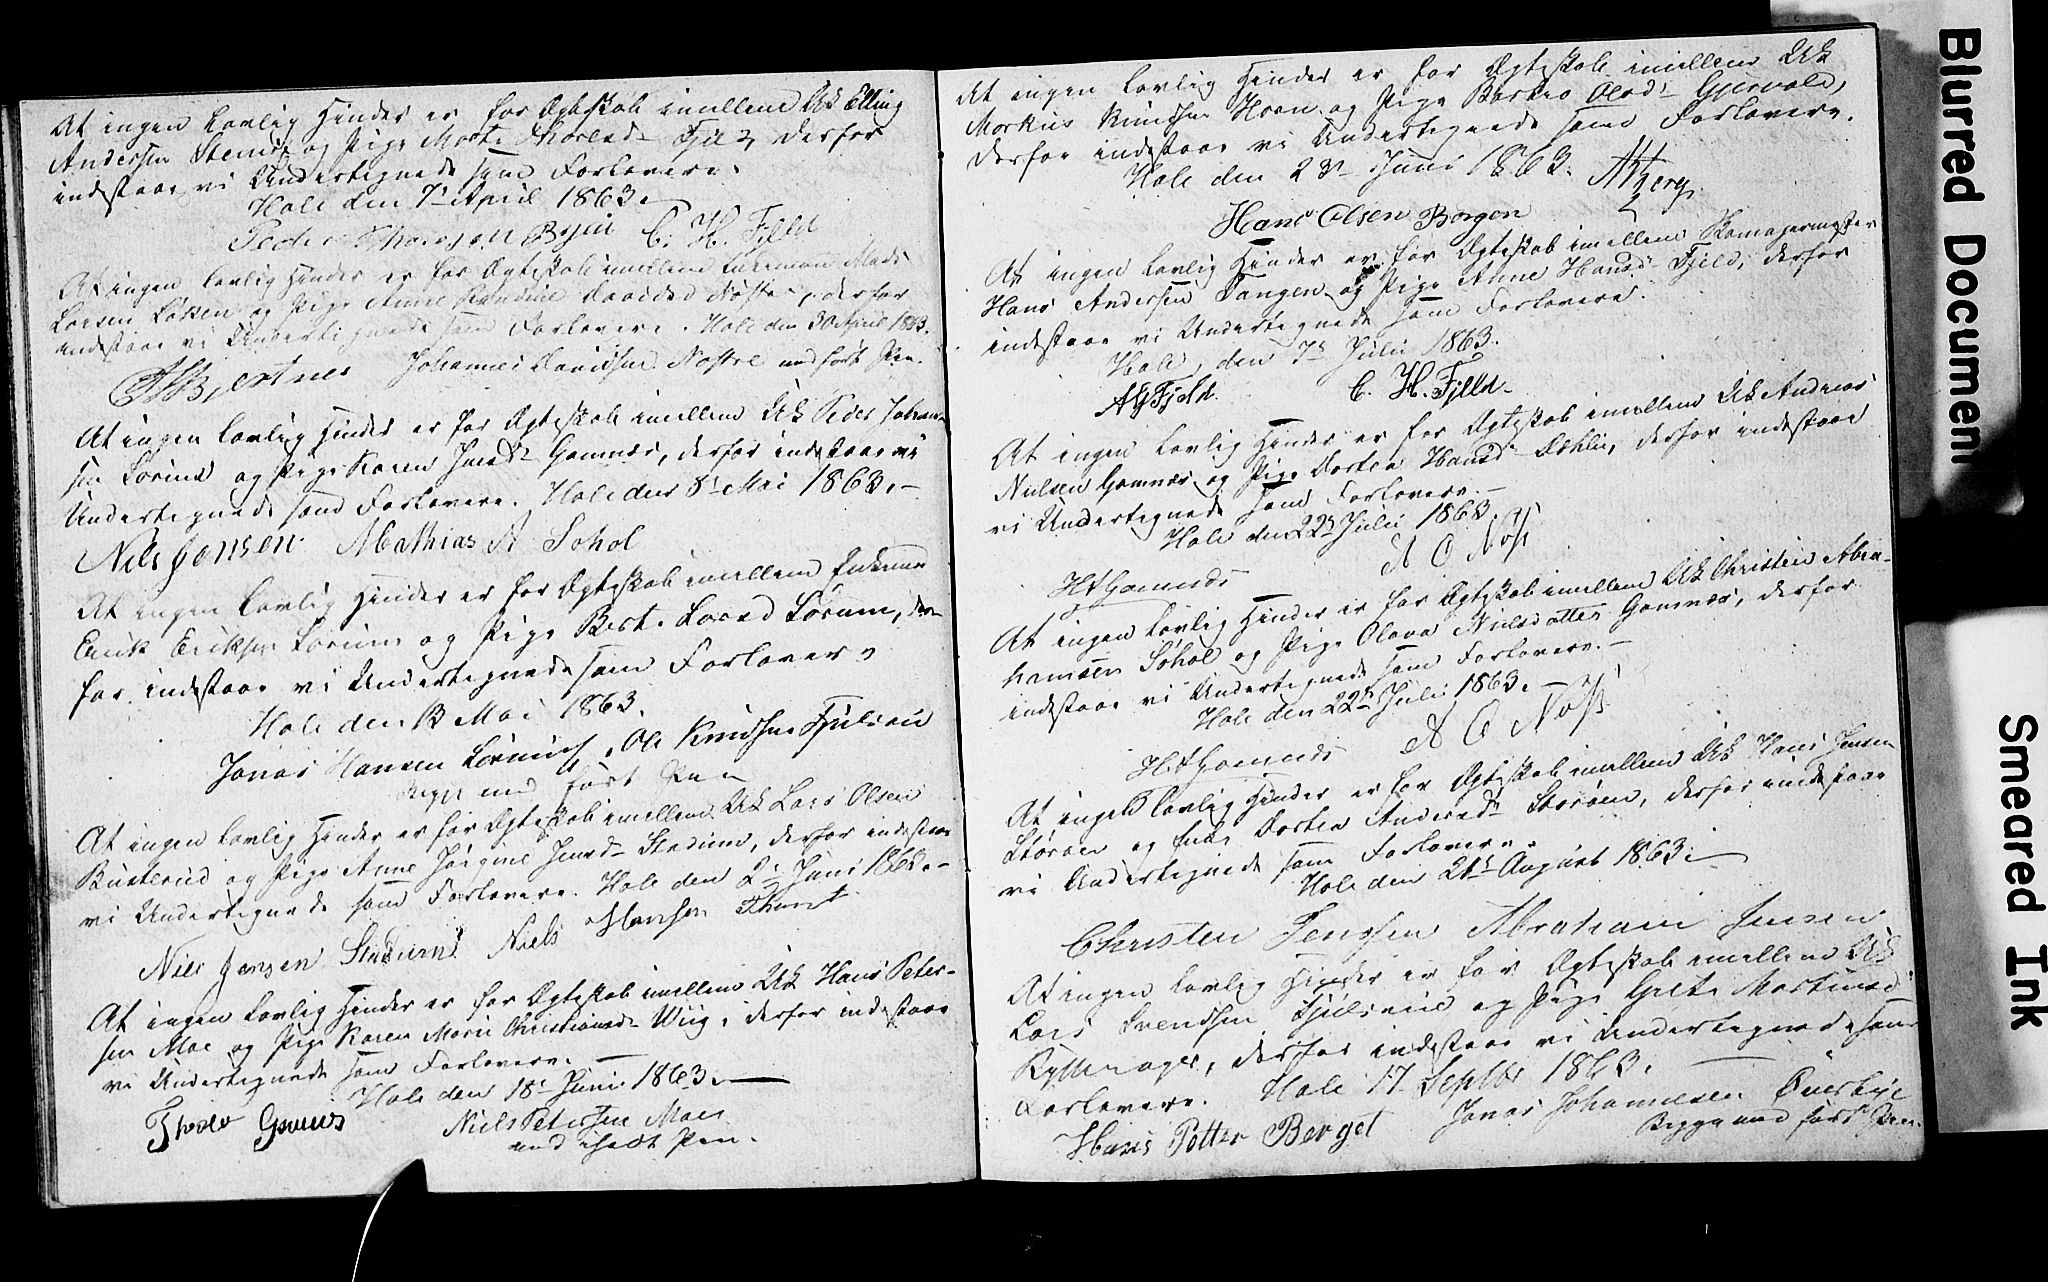 At ingen lovlig Hinder er for Ægteskab imellem Uk Elling
Andersen og Pige Marte Thorsd Fjeld, derfor
indestaae vi Undertegnede som Forlovere.
Hole den 7de April 1863.
Peder C. H. Fjeld
At ingen lovlig Hinder er for Ægteskab imellem Enkemand Mads
Larsen Løken og Pige Anne Davidsd Næstre, derfor
indestaae vi Undertegnede som Forlovere. Hole den 30 April 1863.
Johannes Davidsen Næstre med ført Pen.
At ingen lovlig Hinder er for Ægteskab imellem Uk Peder Johan-
sen og Pige Karen Jensd Gomnæs, derfor indestaae vi
Undertegnede som Forlovere. Hole den 8de Mai 1863.–
Nils Jensen Mathias A Sohol
At ingen lovlig Hinder er for Ægteskab imellem Enkemand
Erik Eriksen Sørum og Pige Berte Larsd Sørum, der-
for indestaae vi Undertegnede som Forlovere
Hole den 13 Mai 1863.
Jonas Hansen Ole Knudsen
Begge med ført Pen
At ingen lovlig Hinder er for Ægteskab imellem Uk Lars Olsen
Busterud og Pige Anne Jørgine Jensd Stadum, derfor indestaae
vi Undertegnede som Forlovere. Hole den 2 Juni 1863.–
Nils Jensen Stadum Niels Hansen
At ingen lovlig Hinder er for Ægteskab imellem Uk Hans Peter-
sen Moe og Pige Karen Marie Christiansd Wiig, derfor indestaae
vi Undertegnede som Forlovere. —
Hole den 18de Juni 1863. —
Niels Petersen Moe
med ført Pen.
At ingen lovlig Hinder er for Ægteskab imellem Uk
Markus Knudsen og Pige Olsd Gjervold,
derfor indestaae vi Undertegnede som Forlovere.
Hole den 23de Juni 1863.
Hans Olsen Borgen
At ingen lovlig Hinder er for Ægteskab imellem Skomagermester
Hans Andersen Tangen og Pige Anne Hansd Fjeld, derfor
indestaae vi Undertegnede som Forlovere.
Hole, den 7de Julii 1863.
A G Fjeld C. H. Fjeld
At ingen lovlig Hinder er for Ægteskab imellem Uk Andreas
Nielsen Gomnæs og Pige Dorthea Hansd Dæhlin, derfor indestaae
vi Undertegnede som Forlovere.–
Hole den 22de Julii 1863.
H A Gomnæs A O Næss
At ingen lovlig Hinder er for Ægteskab imellem Uk Christen Abra-
hamsen Sohol og Pige Olava Nielsdatter Gomnæs, derfor
indestaae vi Undertegnede som Forlovere.–
Hole den 22de Juli 1863.
H A Gomnæs A O Næss
At ingen lovlig Hinder er for Ægteskab imellem Uk Hans Jensen
Storøen og Enke Dorthea Andersd Storøen, derfor indestaae
vi Undertegnede som Forlovere.
Hole den 21de August 1863. —
Christen Jenssen Abraham Jensen
At ingen lovlig Hinder er for Ægteskab imellem Uk
Lars Svendsen og Pige Grete Martinsd
Rytterager, derfor indestaae vi Undertegnede som
Forlovere. Hole 17 Septbr 1863. —
Hans Petter Berget Jonas Johannesen Øverbye
Begge med ført Pen.
Blurred Document
Smeared Ink